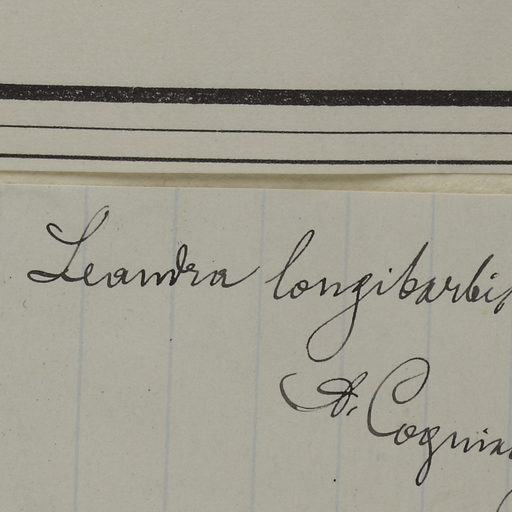 Leandra longibarbis
A. Cogniau